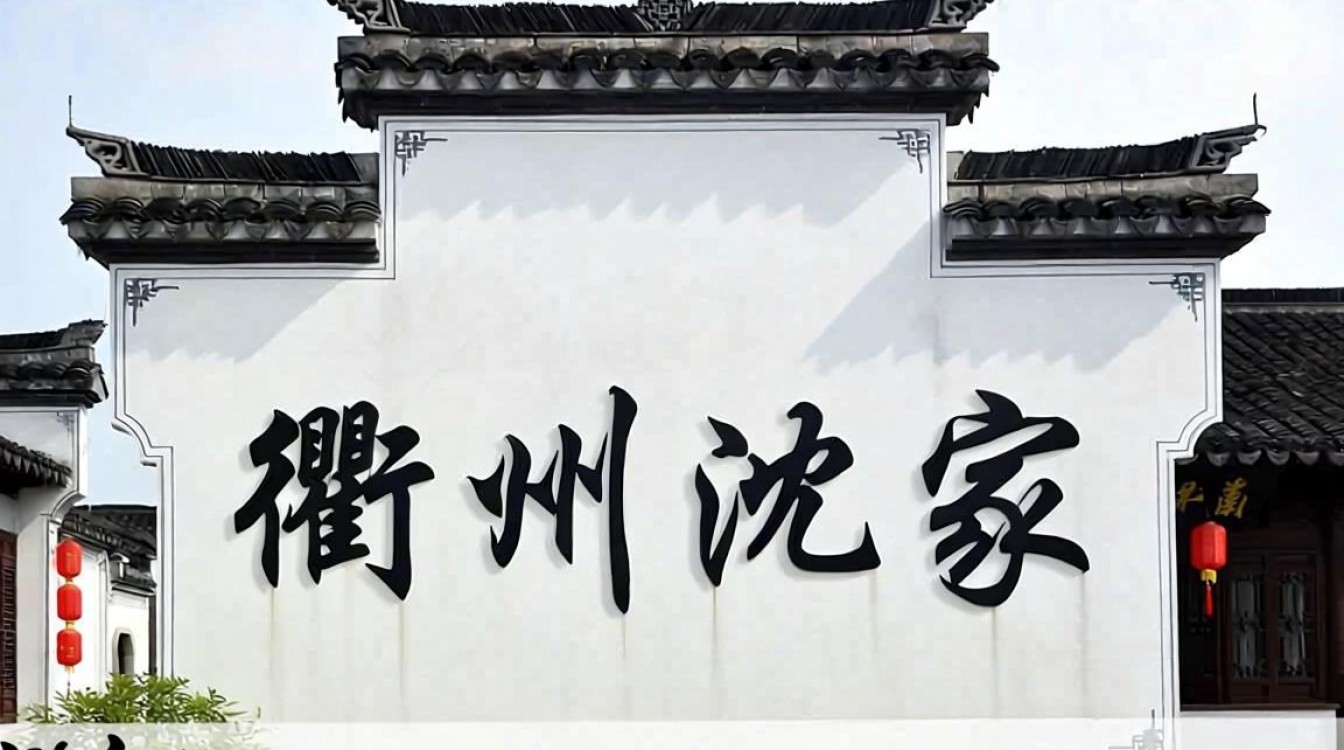 衢州沈家